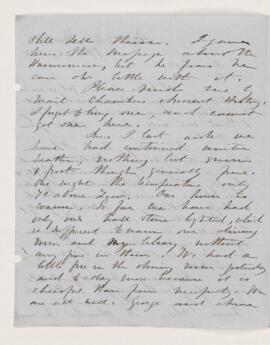 still sells theirs. I gave
him the message about the
, but he fears he
can do little with it.
Please send me by
mail Chambers Ancient History.
I forgot to bring one, and cannot
get one here.
Since I last wrote we
have had continued winter
weather, nothing but snow
& frost though generally fine.
One night the temperature only
above Zero. Our house is
warm. So far we have had
only our hall stove lighted, which
is sufficient to warm our dining
room and my library without
any fire in them. We had a
little fire in the dining room yesterday
and to-day more because it is
cheerful than from necessity. We
are all well. George and